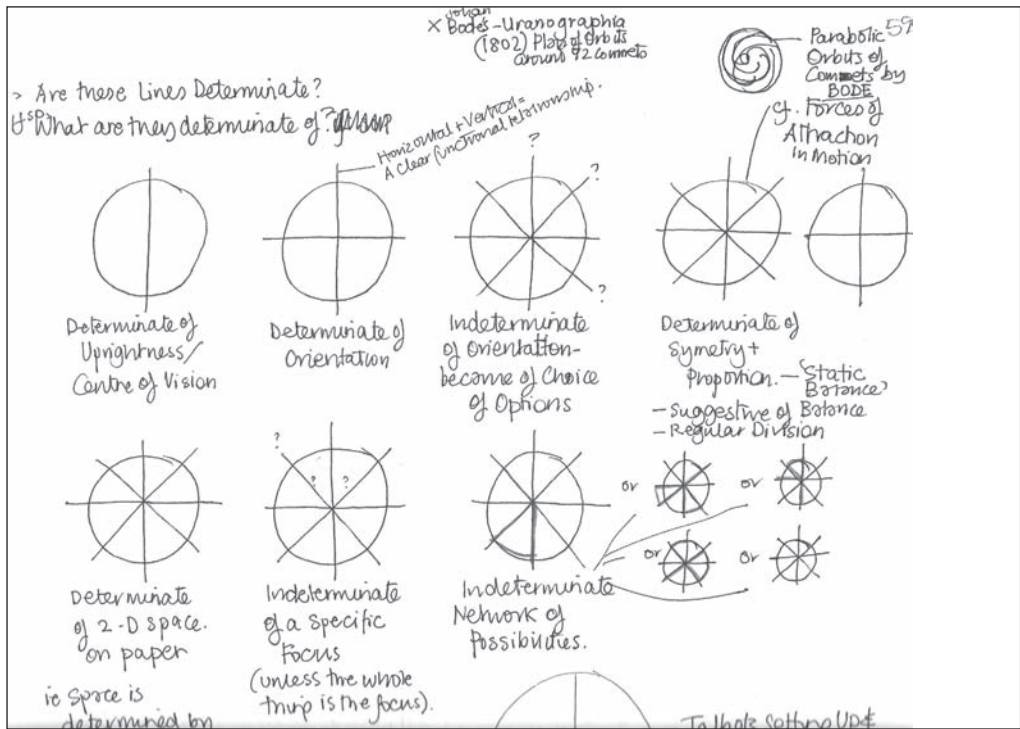 × Johan
Bode's - Uranographia
(1802) Play of Orbits
around 92 Comets
59
Parabolic
Orbits of
Comets by
BODE
cf. Forces of
Attraction
in Motion
> Are these Lines Determinate?
What are they determinate of?
Horizontal + Vertical =
A clear functional relationship.
?
?
?
Determinate of
Uprightness/
Centre of Vision
Determinate of
Orientation
Indeterminate
of Orientation-
become of Choice
of Options
Determinate of
Symetry +
Proportion. — Static
Balance?
- Suggestive of Balance
- Regular Division
?
? ?
or
or
or
or
Determinate
of 2-D space.
on paper
Indeterminate
of a Specific
Focus
(unless the whole
thing is the focus).
Indeterminate
Network of
Possibilities.
ie Space is
determined by